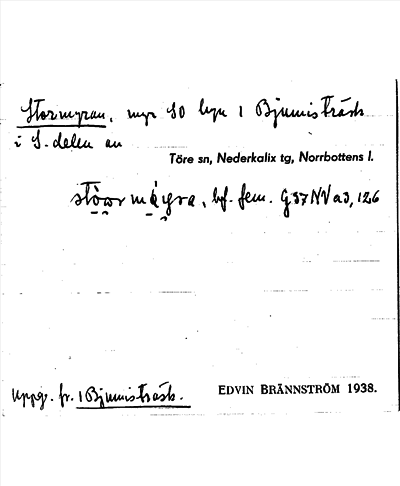 Stormyran, myr SO byn 1 Bjumisträsk
i S. delen av
Töre sn, Nederkalix tg, Norrbottens l.
bf. fem. G 37 NV a3, 126
Uppg. fr. 1 Bjumisträsk.
EDVIN BRÄNNSTRÖM 1938.